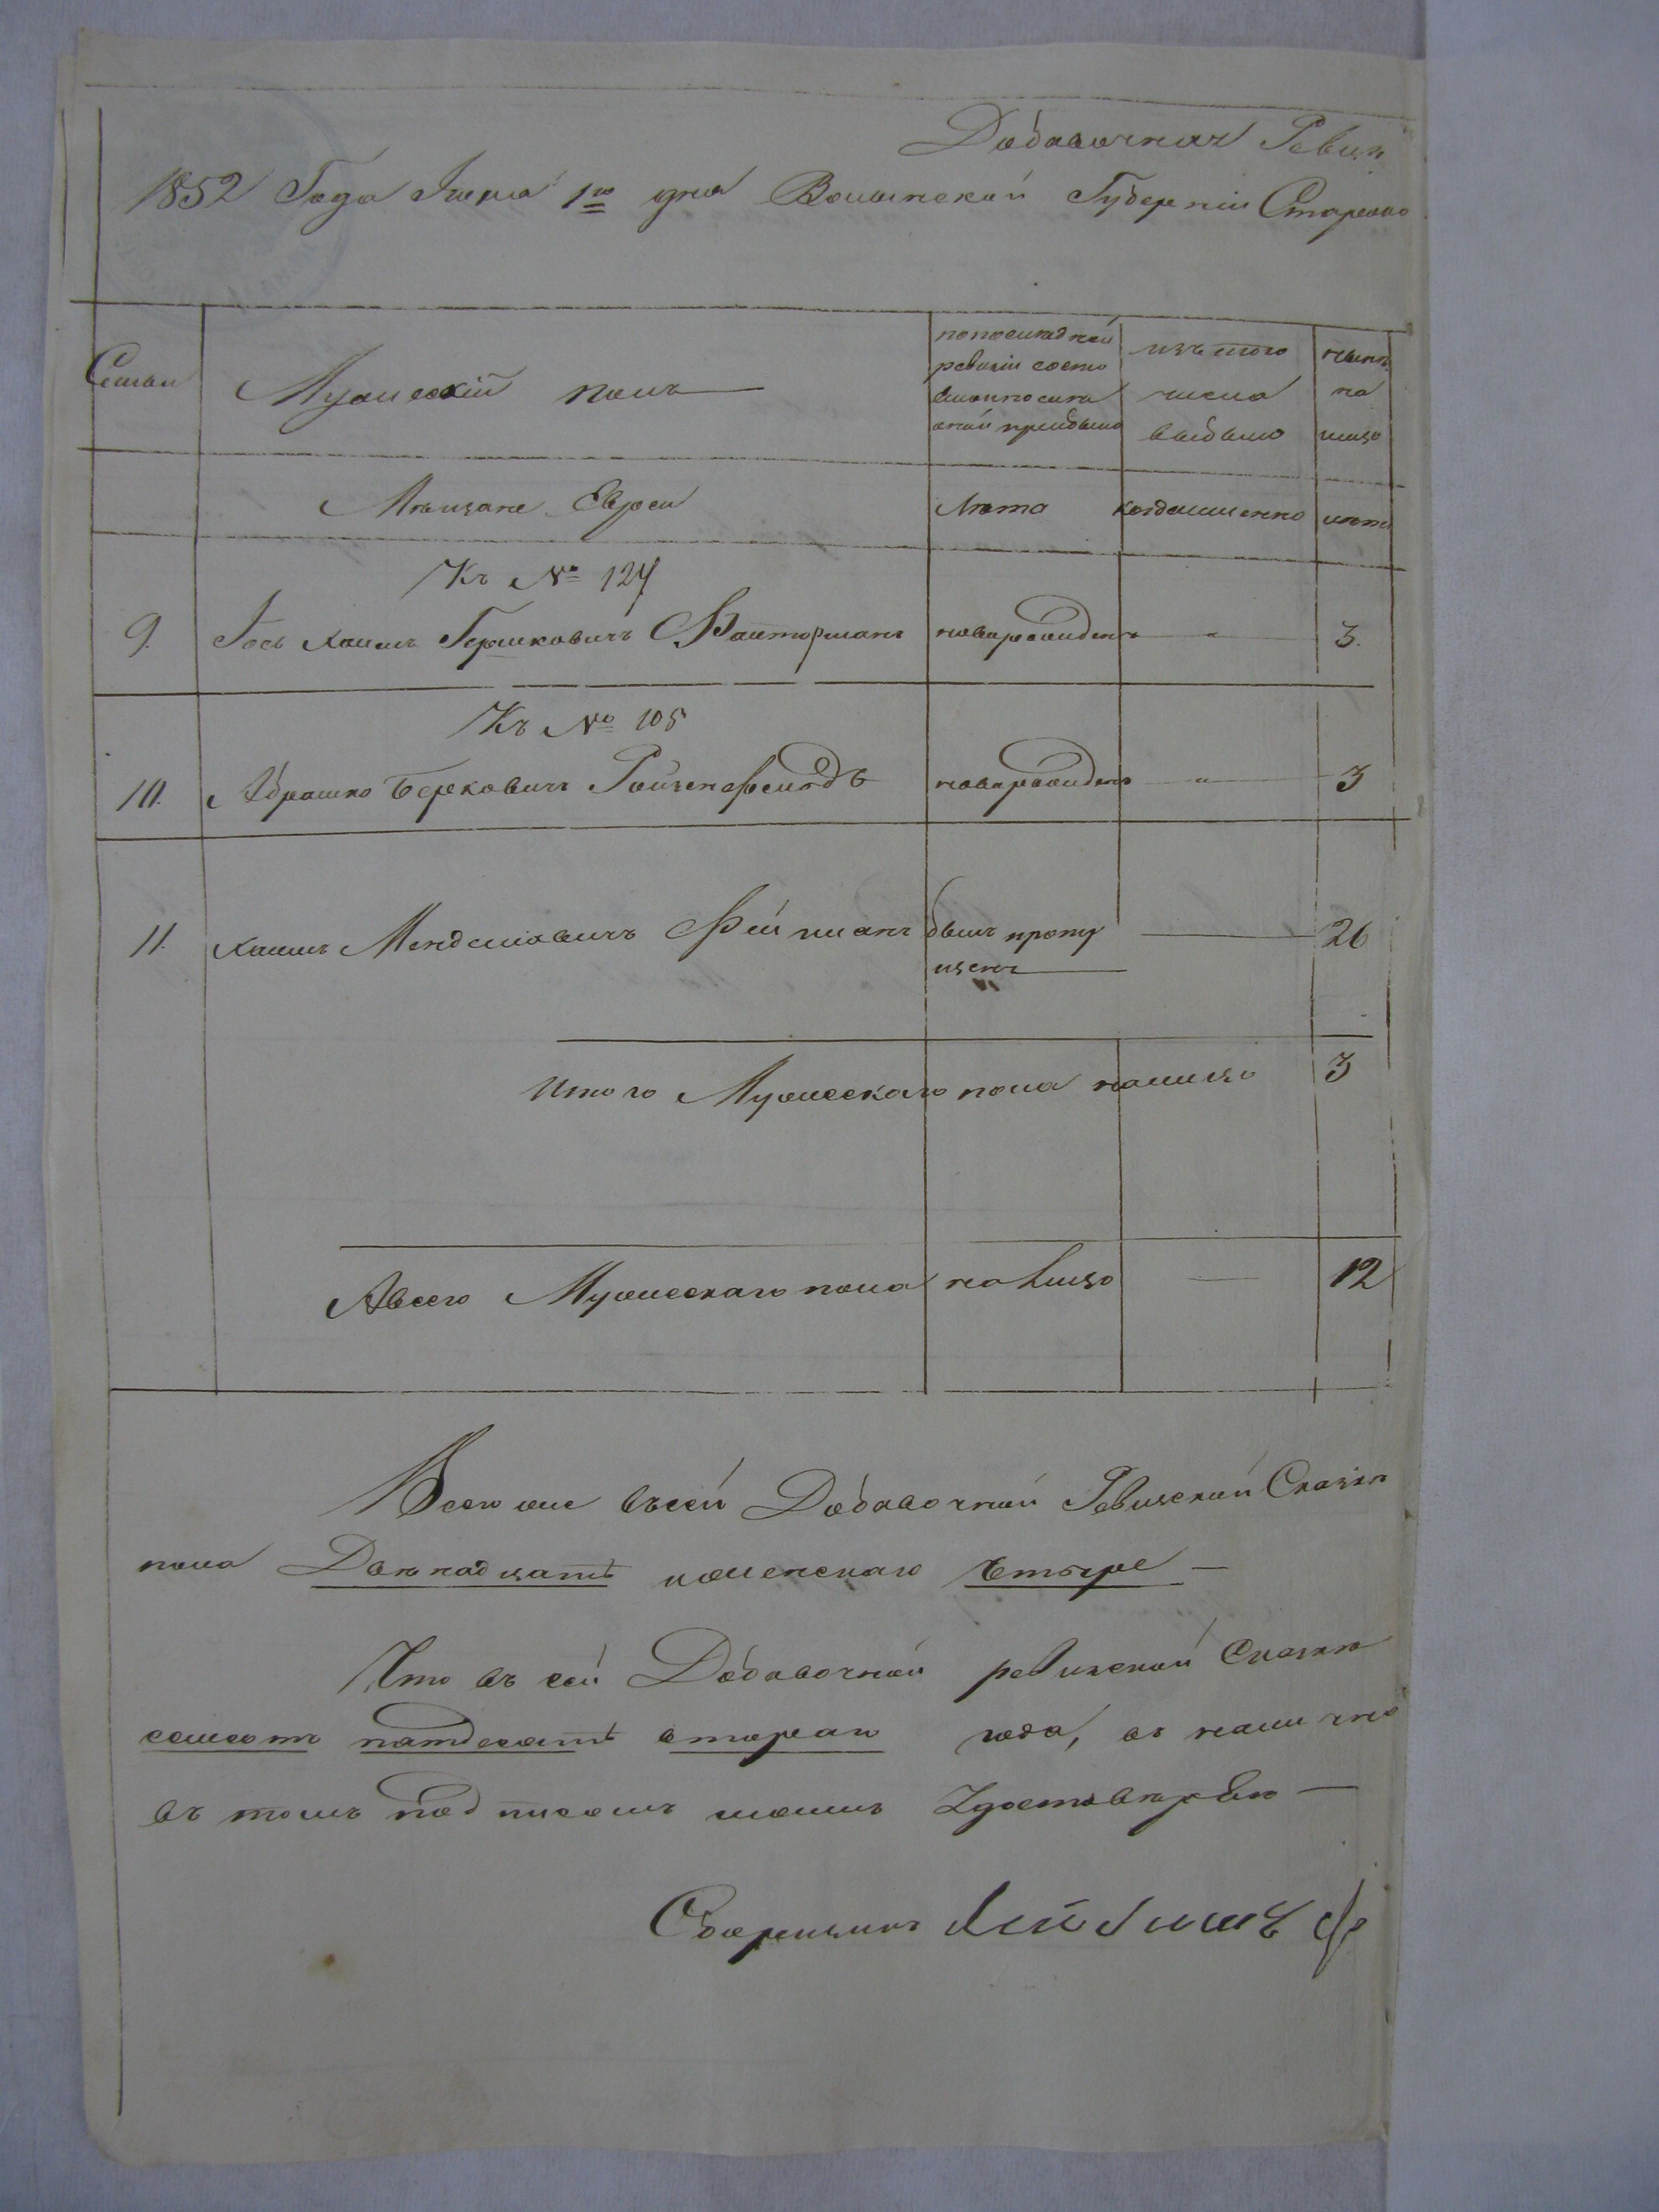 Добавочная Ревиз
1852 Года Iюня 1го дня Волынской Губернiи Староко
Семьи
Мужескiй полъ
попоследней
ревизiи состо
яло и после
оной прибыло
изъ того
числа
выбыло
нынѣ
на
лицо
Мѣщане Евреи
Лѣта
когда именно
лѣта
Къ № 127
9. Iось Хаимъ Гершковичъ Факторманъ новорожденъ " 3.
Къ № 105
10. Абрашко Берковичъ Ройзенфельдъ новорожденъ " 3
11. Хаимъ Менделiовичъ Фейманъ былъ пропу
щенъ
26
Итого Мужескаго пола налицо 3
Авсего Мужескаго пола на Лицо 12
Всего же въсей Добавочной Ревизской Сказкѣ
пола Двѣнадцать женскаго четыре —
Что въ сей Добавочной ревизской Сказкѣ
семсотъ пятдесятъ втораго года, въ налично
въ томъ подписомъ моимъ Удостоверяю —
Сборщикъ